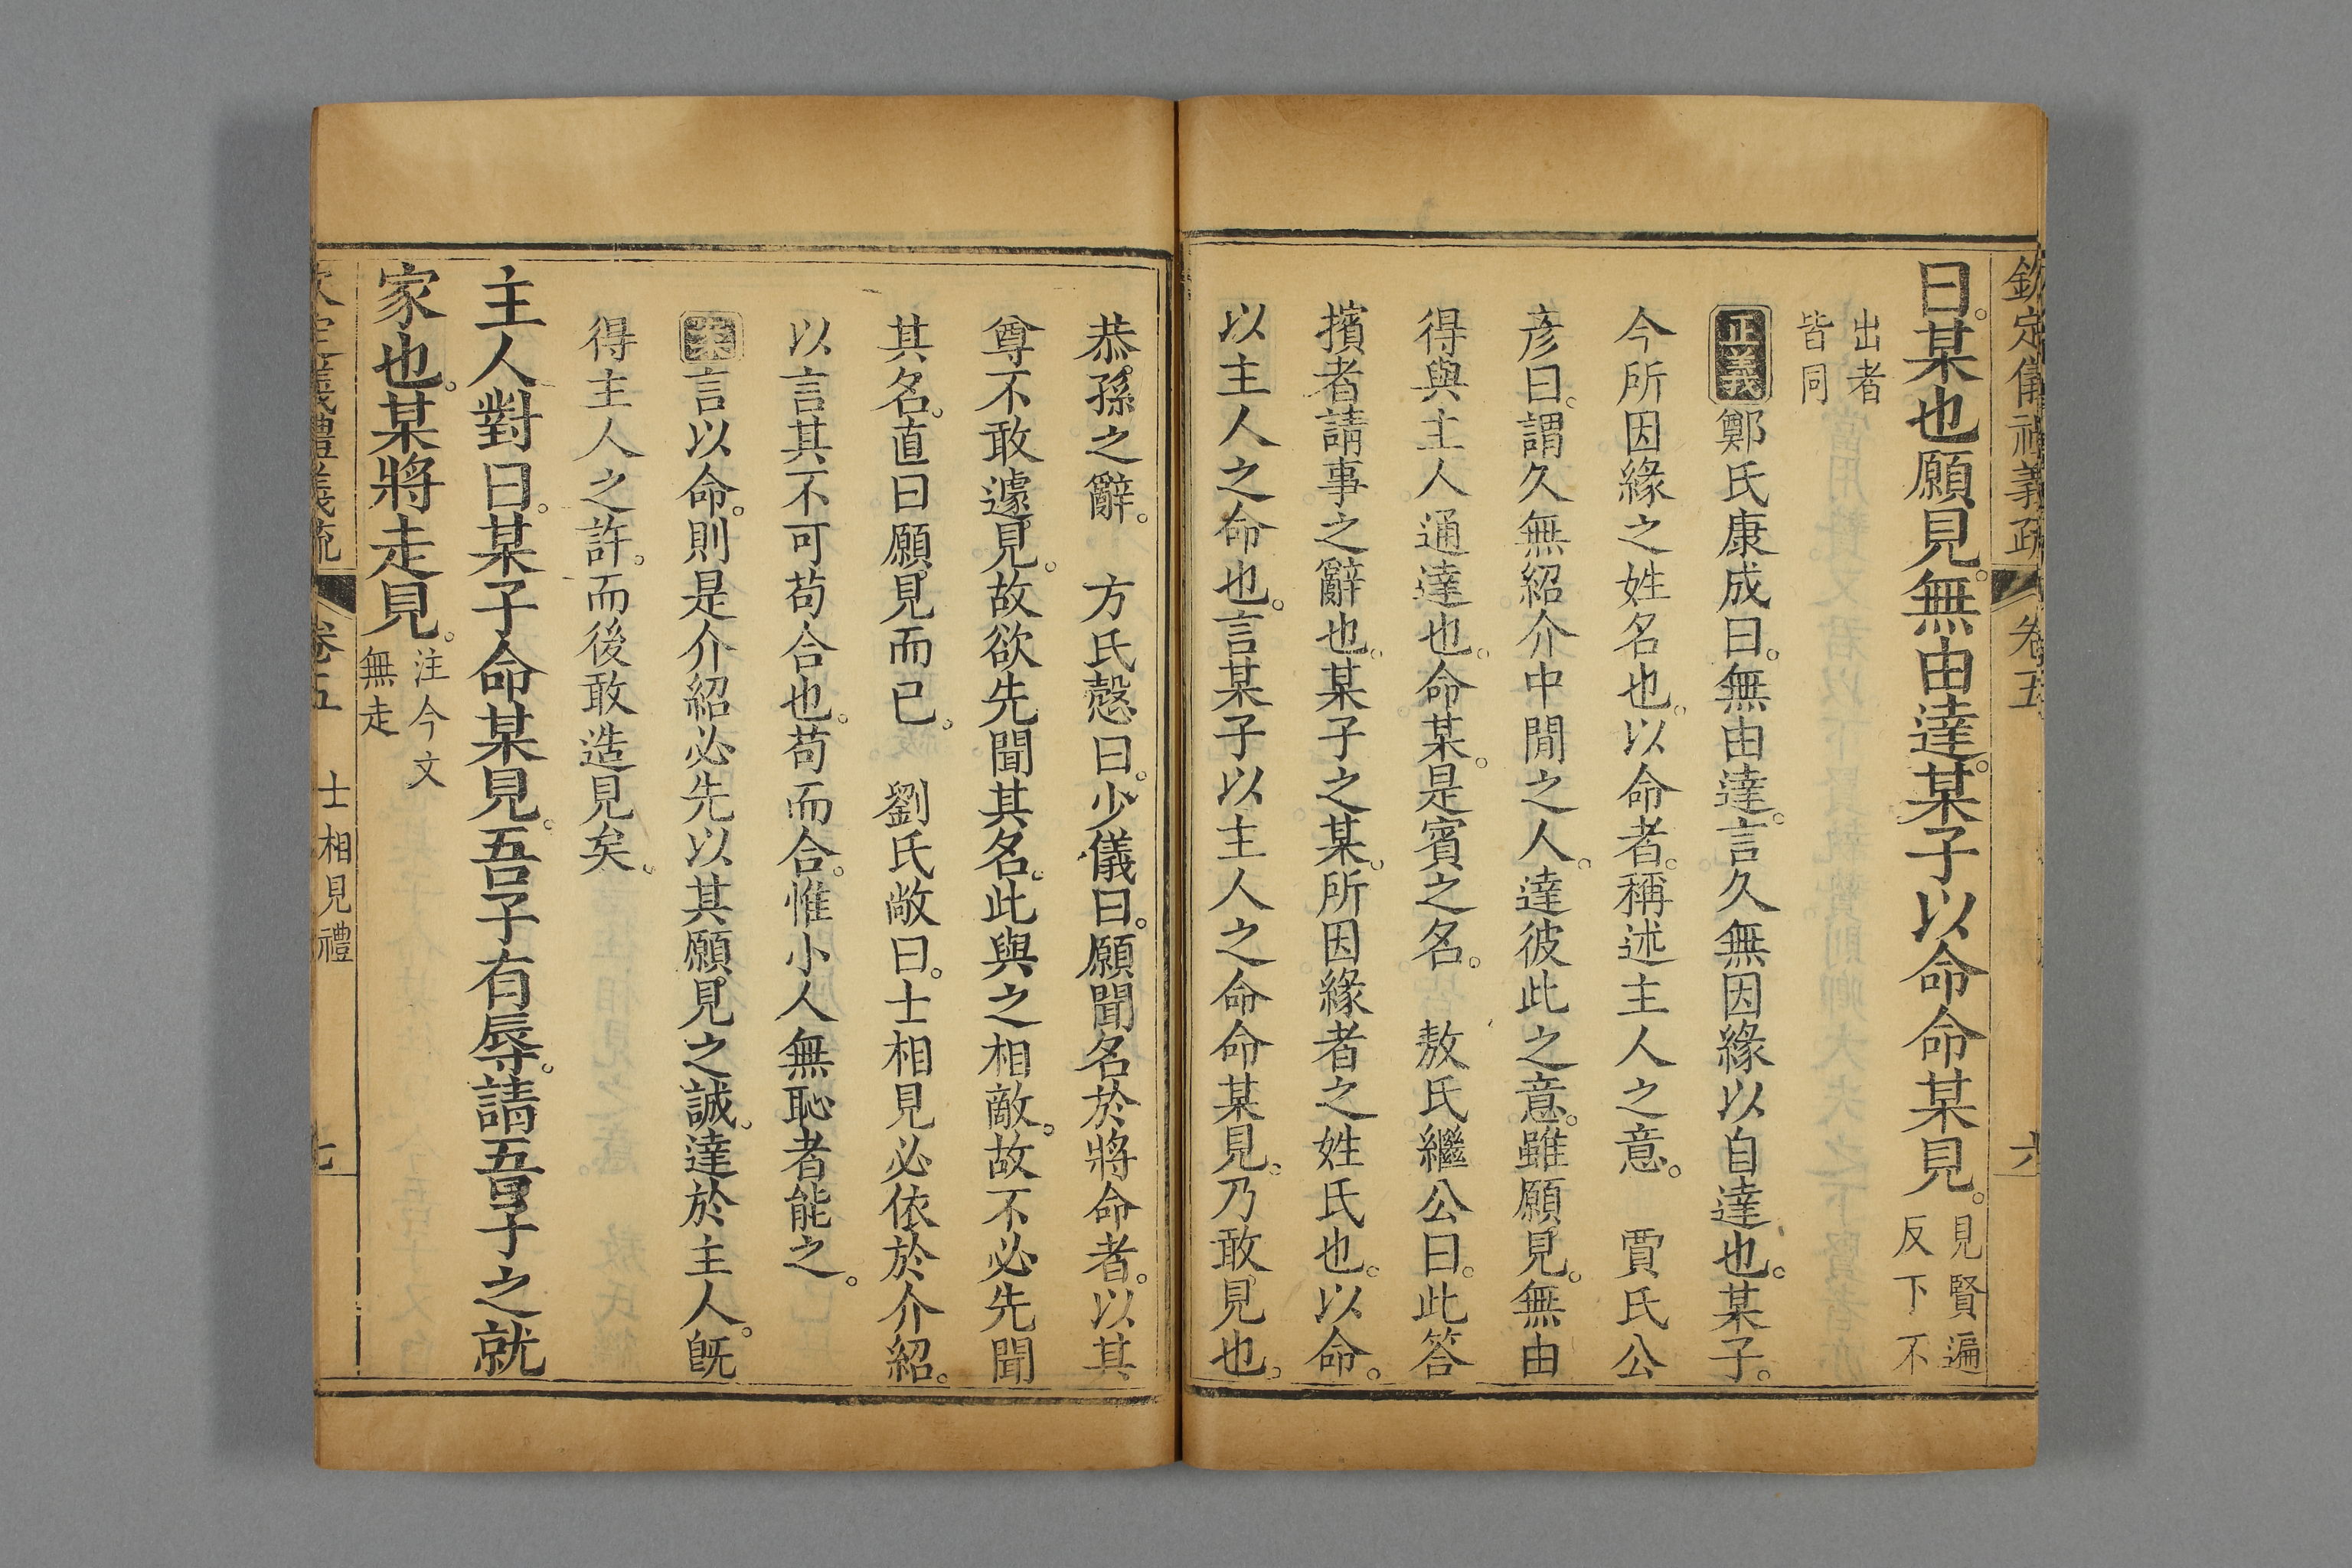 欽定儀禮義疏 卷五 六
曰。某也願見。無由達。某子以命命某見。見賢遍
反下不
出者
皆同
正義鄭氏康成曰。無由達。言久無因緣以自達也。某子。
今所因緣之姓名也。以命者。稱述主人之意。 賈氏公
彥曰。謂久無紹介中閒之人。達彼此之意。雖願見。無由
得與主人通達也。命某。是賓之名。 敖氏繼公曰。此答
擯者請事之辭也。某子之某。所因緣者之姓氏也。以命。
以主人之命也。言某子以主人之命命某見。乃敢見也。
恭孫之辭。 方氏愨曰。少儀曰。願聞名於將命者。以其
尊不敢遽見。故欲先聞其名。此與之相敵。故不必先聞
其名。直曰願見而已。 劉氏敞曰。士相見必依於介紹。
以言其不可苟合也。苟而合。惟小人無恥者能之。
案言以命。則是介紹必先以其願見之誠。達於主人。旣
得主人之許。而後敢造見矣。
主人對曰。某子命某見。吾子有辱。請吾子之就
家也。某將走見。注今文
無走
欽定儀禮義疏 卷五 士相見禮 七